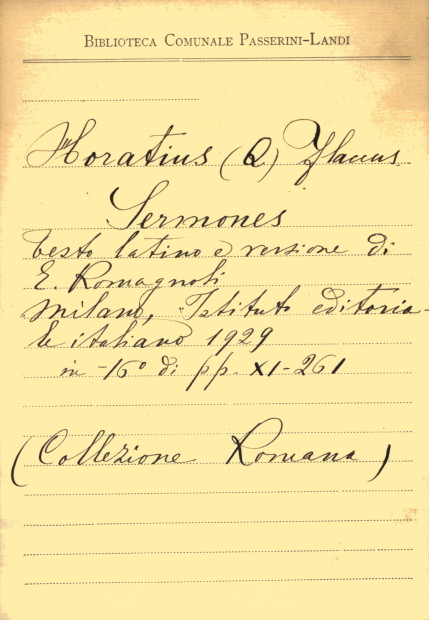 BIBLIOTECA COMUNALE PASSERINI-LANDI
Horatius (Q) Flacus
Sermones
testo latino e versione di
E. Romagnoli
Milano, Istituto editoria-
le italiano 1929
in -16° di pp. XI-261
(Collezione Romana)